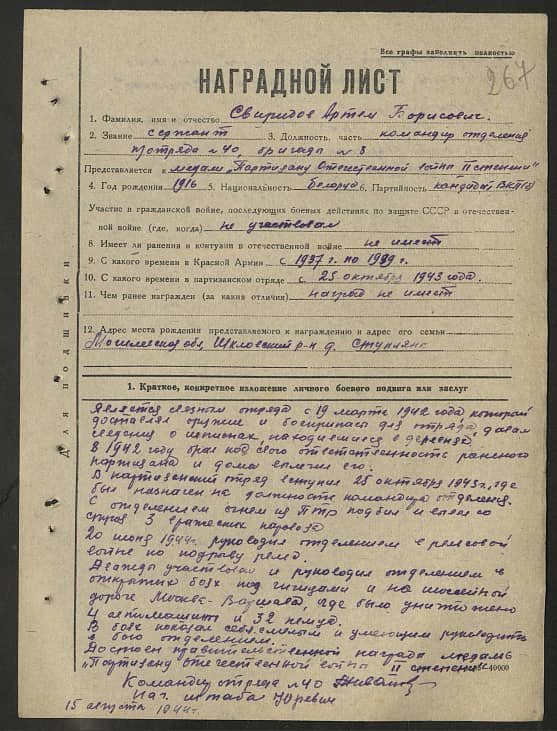 Все графы заполнять полностью
267
НАГРАДНОЙ ЛИСТ
1. Фамилия, имя и отчество Свиридов Артем Борисович.
2. Звание сержант 3. Должность, часть командир отделения
отряда №40, бригады №8
Представляется к медали „Партизану Отечественной войны II степени"
4. Год рождения 1916 5. Национальность белорус 6. Партийность кандидат ВКП(б)
Участие в гражданской войне, последующих боевых действиях по защите СССР и отечествен-
ной войне (где, когда) не участвовал
8. Имеет ли ранения и контузии в отечественной войне не имеет
9. С какого времени в Красной Армии с 1937 г. по 1939 г.
10. С какого времени в партизанском отряде с 25 октября 1943 года.
11. Чем ранее награжден (за какие отличия) наград не имеет
12. Адрес места рождения представляемого к награждению и адрес его семьи
Могилевская обл, Шкловский р-н д.
Для подшивки
1. Краткое, конкретное изложение личного боевого подвига или заслуг
Является связным отряда с 19 марта 1942 года который
доставлял оружие и боеприпасы для отряда, давал
сведения о шпионах, находившихся в деревнях
В 1942 году брал под свою ответственность раненого
партизана и дома вылечил его.
В партизанский отряд вступил 25 октября 1943 г., где
был назначен на должность командира отделения.
С отделением огнем из ПТР подбил и вывел со
строя 3 вражеских паровоза
20 июня 1944 г. руководил отделением в рельсовой
войне по подрыву рельс.
Дважды участвовал и руководил отделением в
открытых боях под и на шоссейной
дороге Москва-Варшава, где было уничтожено
4 автомашины и 32 немца.
В боях показал себя смелым и умеющим руководить
в бою отделением.
Достоин правительственной награды медаль
„Партизану отечественной войны II степени"
40000
Командир отряда №40
Нач. штаба Юревич
15 августа 1944 г.